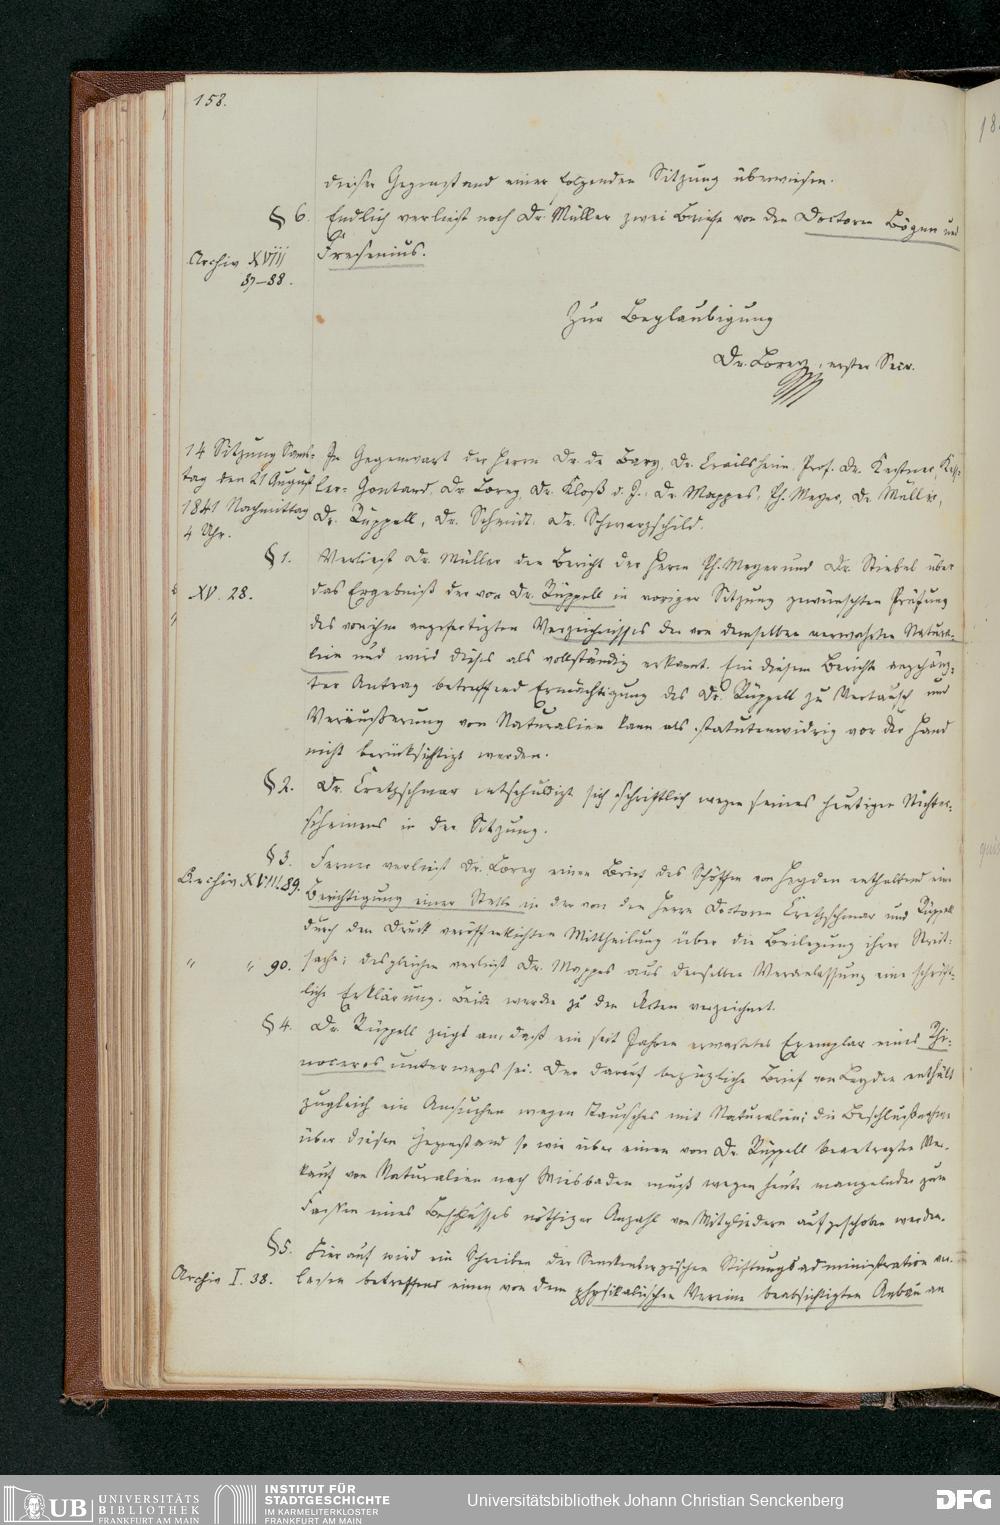 158.
dieser Gegenstand einer folgenden Sitzung überwiesen.
§ 6. Endlich verliest noch Dr. Müller zwei Briefe von den Doctoren Bögner und
Fresenius.
Archiv XVIII
87–88.
Zur Beglaubigung
Dr. Lorey, erster Secr.
14 Sitzung Sams-
tag den 21 August
1841 Nachmittag
4 Uhr.
In Gegenwart der Herrn Dr. de Bary, Dr. Crailsheim, Prof. Dr. Kestner, Keß-
ler-Gontard, Dr. Lorey, Dr. Kloß d. J., Dr. Mappes, H. Meyer, Dr. Müller,
Dr. Rüppell, Dr. Schmidt, Dr. Schwarzschild.
§ 1. Verliest Dr. Müller den Bericht der Herrn H. Meyer und Dr. Stiebel über
XV. 28.
das Ergebniß der von Dr. Rüppell in voriger Sitzung gewünschten Prüfung
des von ihm angefertigten Verzeichnisses der von demselben verwahrten Natura-
lien und wird dieses als vollständig erkannt. Ein diesem Berichte angehäng-
ter Antrag betreffend Ermächtigung des Dr. Rüppell zu Vertausch und
Veräußerung von Naturalien kann als statutenwidrig vor der Hand
nicht berücksichtigt werden.
§ 2. Dr. Cretzschmar entschuldigt sich schriftlich wegen seines heutigen Nichter-
scheinens in der Sitzung.
§ 3. Ferner verliest Dr. Lorey einen Brief des Schöffen von Heyden enthaltend eine
Archiv XVIII. 89.
Berichtigung einer Stelle in der von den Herrn Doctoren Cretzschmar und Rüppell
durch den Druck veröffentlichten Mittheilung über die Beilegung ihrer Streit-
" " 90.
sache; desgleichen verliest Dr. Mappes aus derselben Veranlassung eine schrift-
liche Erklärung. Beide werden zu den Akten verzeichnet.
§ 4. Dr. Rüppell zeigt an, daß ein seit Jahren erwartetes Exemplar eines Rhi-
noceros unterwegs sei. Der darauf bezügliche Brief von Leyden enthält
zugleich ein Ansuchen wegen Tausches mit Naturalien; die Beschlußnahme
über diesen Gegenstand so wie über einen von Dr. Rüppell beantragten Ver-
kauf von Naturalien nach Wiesbaden muß wegen heute mangelnder zum
Fassen eines Beschlusses nöthiger Anzahl von Mitgliedern aufgeschoben werden.
§ 5. Hierauf wird ein Schreiben der Senckenbergischen Stiftungsadministration ver-
Archiv I. 38.
lesen betreffend einen von dem physikalischen Vereine beabsichtigten Anbau an
UB UNIVERSITÄTS
BIBLIOTHEK
FRANKFURT AM MAIN
INSTITUT FÜR
STADTGESCHICHTE
IM KARMELITERKLOSTER
FRANKFURT AM MAIN
Universitätsbibliothek Johann Christian Senckenberg
DFG